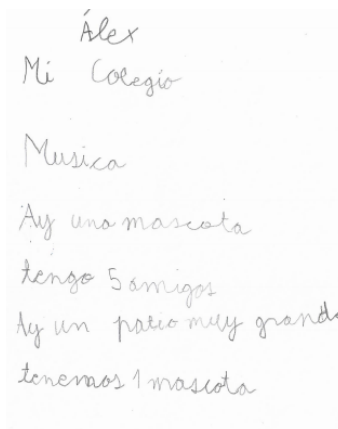 Álex
Mi Colegio
Musica
Ay una mascota
tengo 5 amigos
Ay un patio muy grande
tenemos 1 mascota